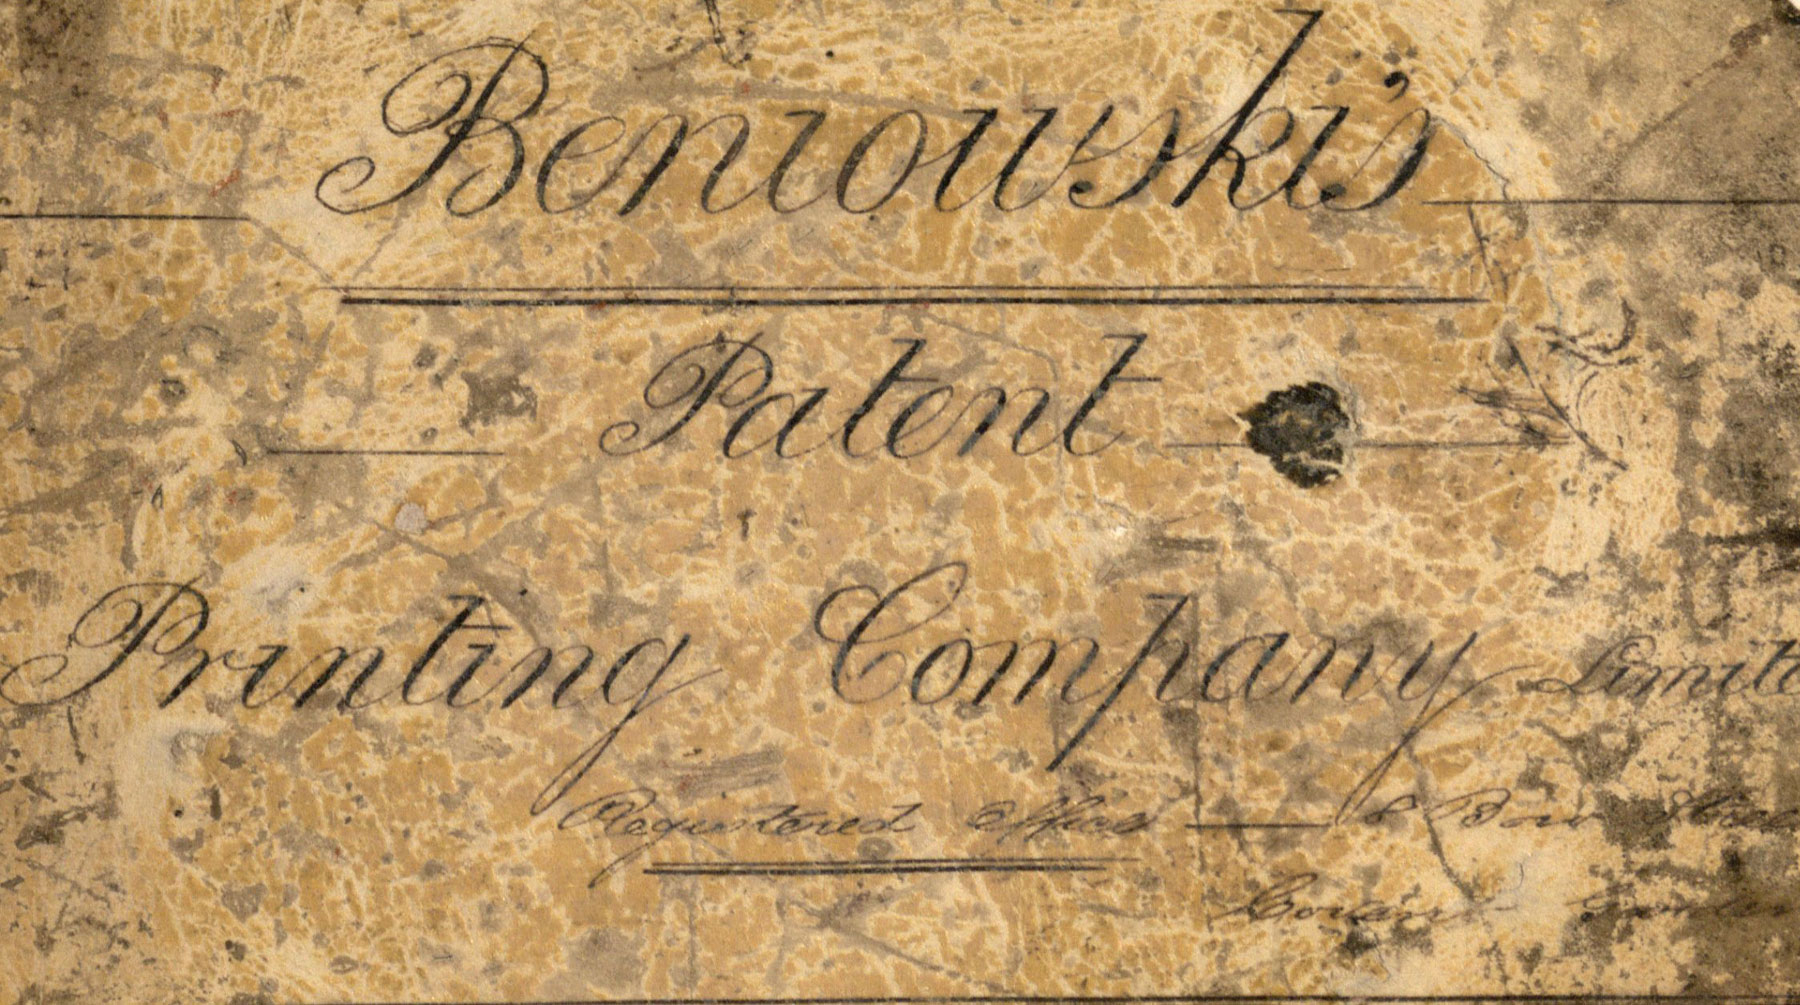 Beniowski's
Patent
Printing Company Limite
Registered Office — 8 Bow Stree
Covent Garden